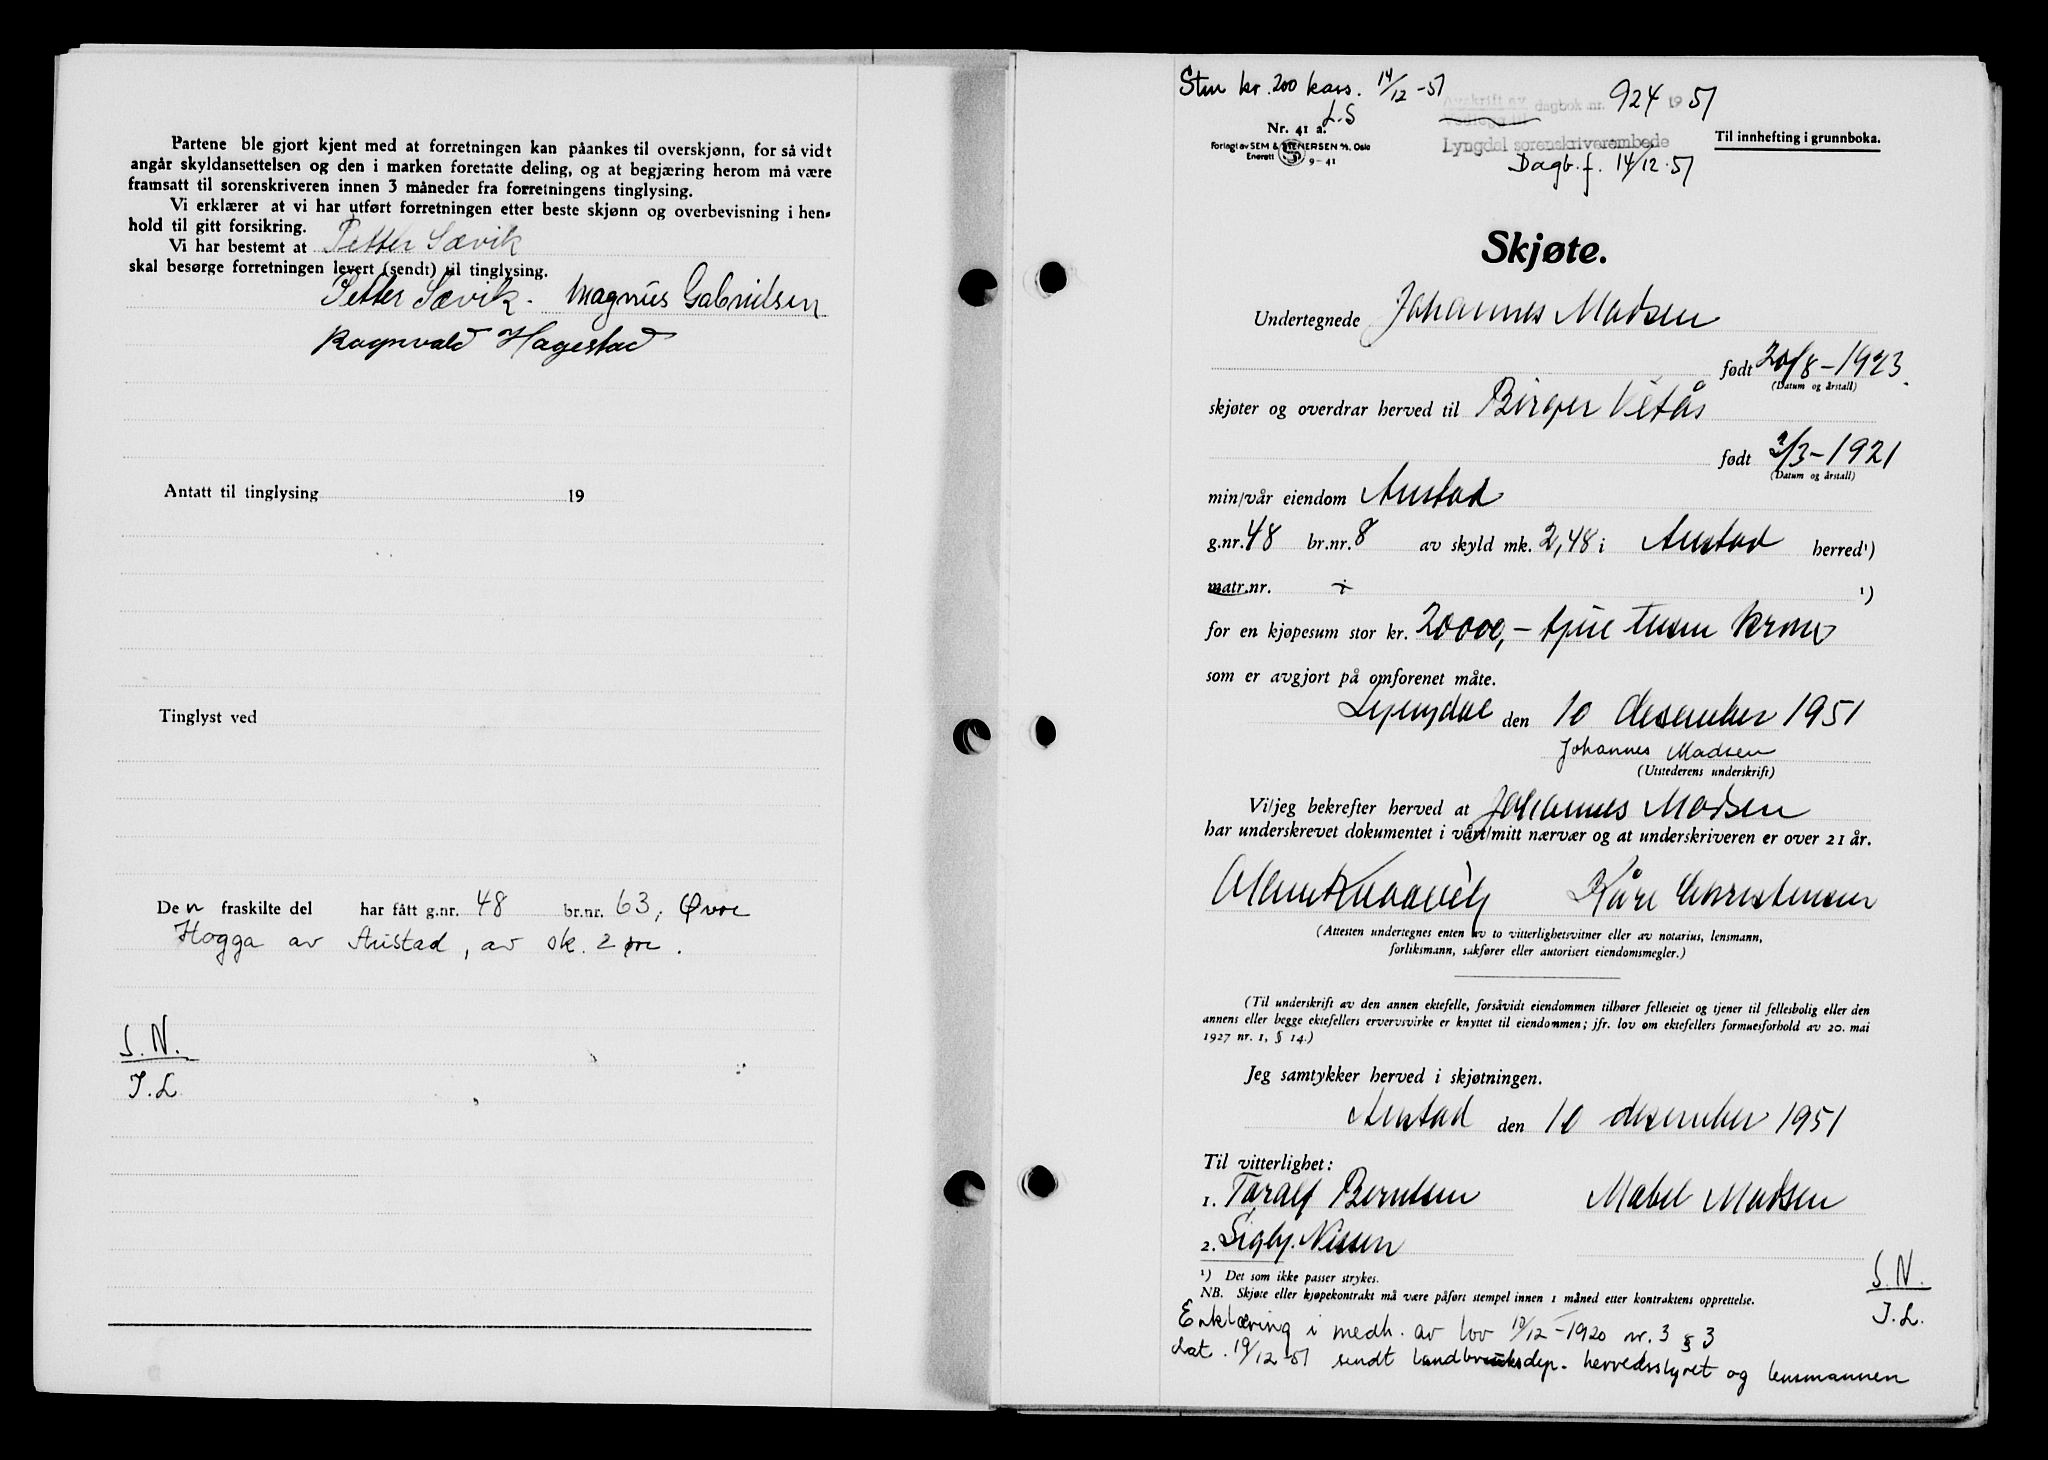 Partene ble gjort kjent med at forretningen kan påankes til overskjønn, for så vidt
angår skyldansettelsen og den i marken foretatte deling, og at begjæring herom må være
framsatt til sorenskriveren innen 3 måneder fra forretningens tinglysing.
Vi erklærer at vi har utført forretningen etter beste skjønn og overbevisning i hen-
hold til gitt forsikring.
Vi har bestemt at Petter Sævik
skal besørge forretningen levert (sendt) til tinglysing.
Petter Sævik. Magnus Gabrielsen
Ragnvald Hagestad
Antatt til tinglysing 19
Tinglyst ved
Den fraskilte del har fått g.nr. 48 br.nr. 63, Øvre
Hogga av Austad, av sk. 2 øre.
S.N.
I.L
Stm kr. 200 kass. 14/12-51
L.S
Avskrift av dagbok nr. 924 1951
Lyngdal sorenskriverembede
Dagb.f. 14/12.51
Nr. 41 a.
Forlagt av SEM & STENERSEN A/S, Oslo
Enerett 9-41
Til innhefting i grunnboka.
Skjøte.
Undertegnede Johannes Madsen
født 20/8-1923.
(Datum og årstall)
skjøter og overdrar herved til Birger Vetås
født 2/3-1921
(Datum og årstall)
min/vår eiendom Austad
g.nr. 48 br.nr. 8 av skyld mk. 2,48 i Austad herred¹)
matr.nr. i ¹)
for en kjøpesum stor kr. 20000,- tjue tusen kroner
som er avgjort på omforenet måte.
Lyngdal den 10 desember 1951
Johannes Madsen
(Utstederens underskrift)
Vi/jeg bekrefter herved at Johannes Madsen
har underskrevet dokumentet i vårt/mitt nærvær og at underskriveren er over 21 år.
Kåre Christensen
(Attesten undertegnes enten av to vitterlighetsvitner eller av notarius, lensmann,
forliksmann, sakfører eller autorisert eiendomsmegler.)
(Til underskrift av den annen ektefelle, forsåvidt eiendommen tilhører felleseiet og tjener til fellesbolig eller den
annens eller begge ektefellers ervervsvirke er knyttet til eiendommen; jfr. lov om ektefellers formuesforhold av 20. mai
1927 nr. 1, § 14.)
Jeg samtykker herved i skjøtningen.
Austad den 10 desember 1951
Til vitterlighet:
1. Toralf Berntsen Mabel Madsen
2. Sigbj. Nissen
¹) Det som ikke passer strykes.
NB. Skjøte eller kjøpekontrakt må være påført stempel innen 1 måned etter kontraktens opprettelse.
S.N.
I.L.
Erklæring i medh. av lov 10/12-1920 nr. 3 § 3
dat. 19/12-51 sendt landbruksdep. herredsstyret og lensmannen